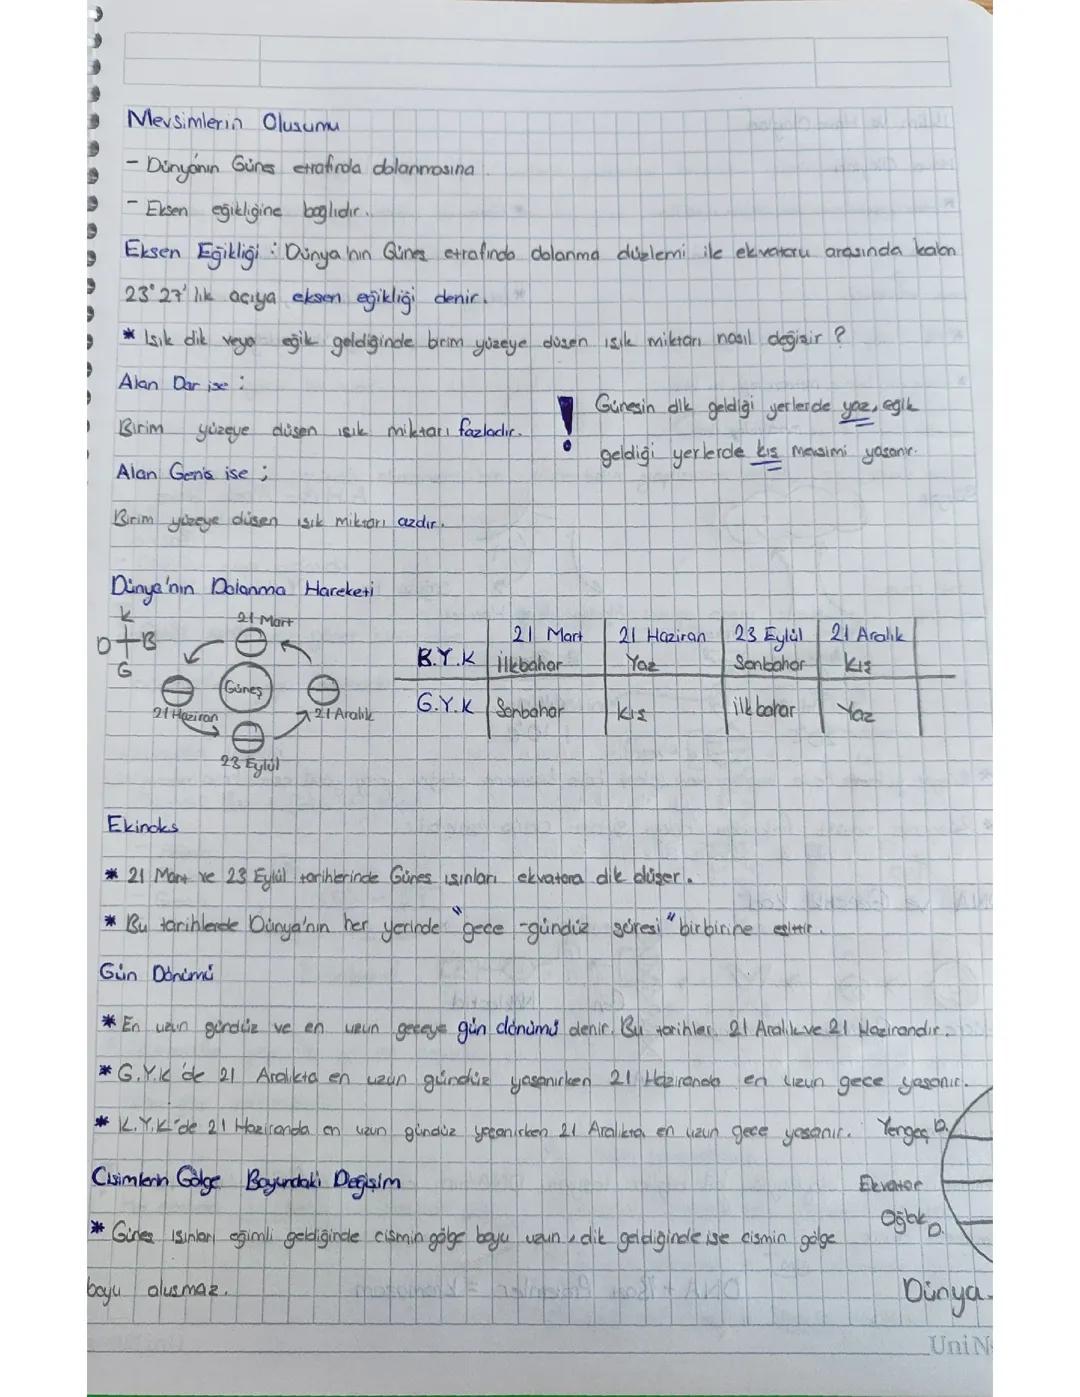 Mevsimlerin Oluşumu
- Dünyanın Güneş etrafında dolanmasına
- Eksen eğikliğine bağlıdır.
Eksen Eğikliği : Dünya'nın Güneş etrafında dolanma düzlemi ile ekvatoru arasında kalan
23°27' lık açıya eksen eğikliği denir.
* Işık dik veya eğik geldiğinde birim yüzeye düşen ışık miktarı nasıl değişir ?
Alan Dar ise :
Birim yüzeye düşen ışık miktarı fazladır.
Alan Geniş ise ;
Birim yüzeye düşen ışık miktarı azdır.
! Güneşin dik geldiği yerlerde yaz, eğik
geldiği yerlerde kış mevsimi yaşanır.
Dünya'nın Dolanma Hareketi
K
D B
G
21 Mart
Güneş
21 Haziran
21 Aralık
23 Eylül
21 Mart 21 Haziran 23 Eylül 21 Aralık
B.Y.K İlkbahar Yaz Sonbahar Kış
G.Y.K Sonbahar Kış ilkbahar Yaz
Ekinoks
* 21 Mart ve 23 Eylül tarihlerinde Güneş ışınları ekvatora dik düşer.
* Bu tarihlerde Dünya'nın her yerinde "gece -gündüz süresi" birbirine eşittir.
Gün Dönümü
* En uzun gündüz ve en uzun geceye gün dönümü denir. Bu tarihler 21 Aralık ve 21 Hazirandır.
* G.Y.K 'de 21 Aralıkta en uzun gündüz yaşanırken 21 Haziranda en uzun gece yaşanır.
* K.Y.K 'de 21 Haziranda en uzun gündüz yaşanırken 21 Aralıkta en uzun gece yaşanır.
Yengeç D.
Ekvator
Oğlak D.
Dünya.
Cisimlerin Gölge Boyundaki Değişim
* Güneş ışınları eğimli geldiğinde cismin gölge boyu uzun, dik geldiğinde ise cismin gölge
boyu oluşmaz.
UniN